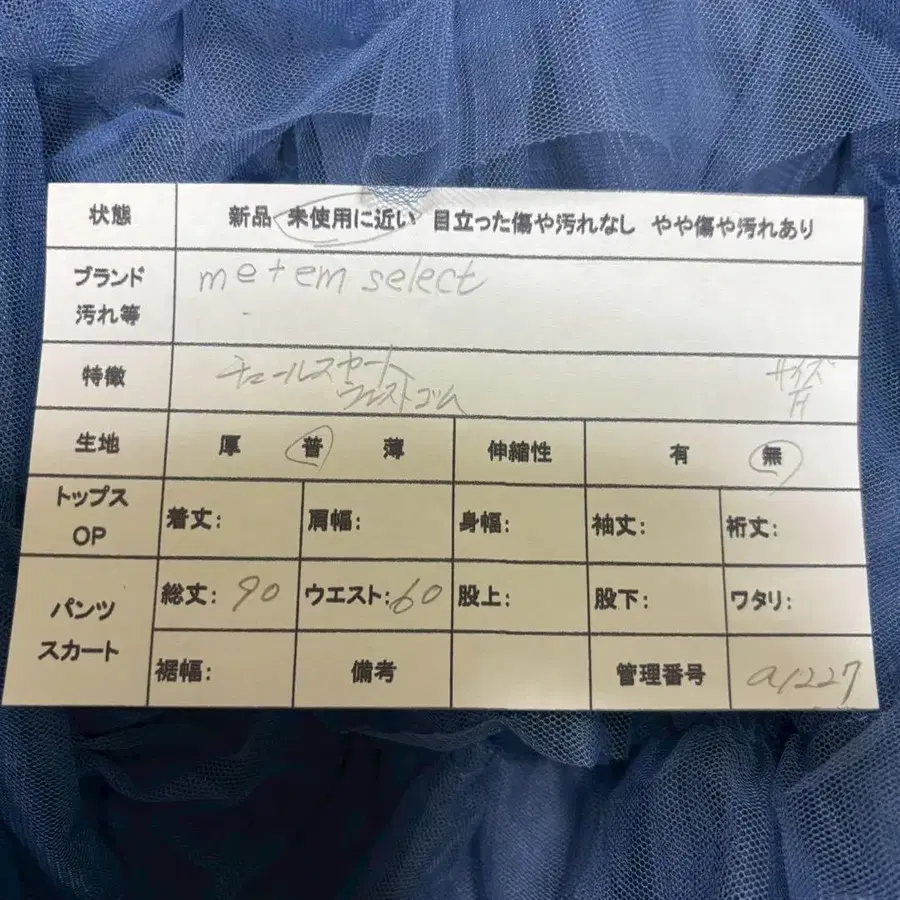 状態 新品 未使用に近い 目立った傷や汚れなし やや傷や汚れあり
ブランド me+em select
汚れ等
特徴 チュールスカート サイズ
ウエストゴム
生地 厚 普 薄 伸縮性 有 無
トップス
OP 着丈: 肩幅: 身幅: 袖丈: 裄丈:
パンツ
スカート
総丈: 90 ウエスト: 60 股上: 股下: ワタリ:
裾幅: 備考 管理番号 a1227